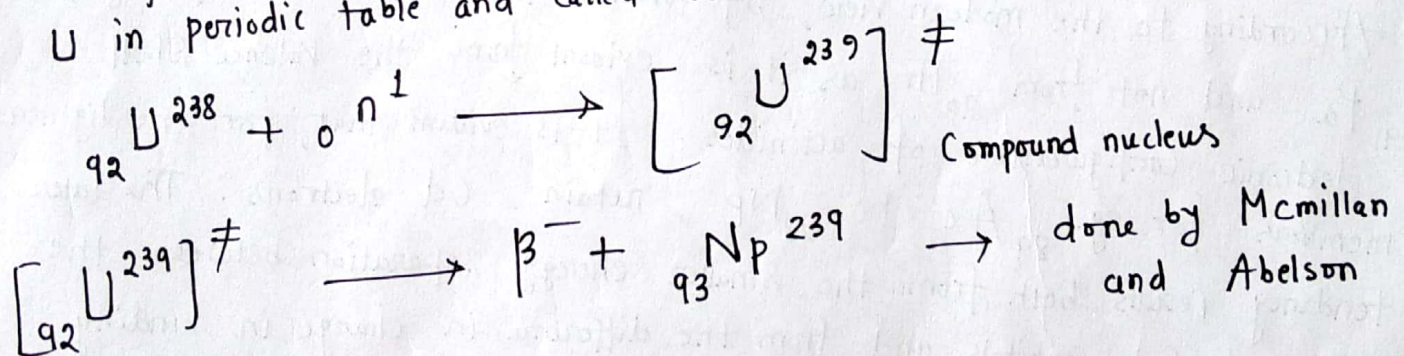 U in periodic table and
₉₂U²³⁸ + ₀n¹ ⟶ [₉₂U²³⁹]≠ Compound nucleus
[₉₂U²³⁹]≠ ⟶ β⁻ + ₉₃Np²³⁹ → done by Mcmillan
and Abelson